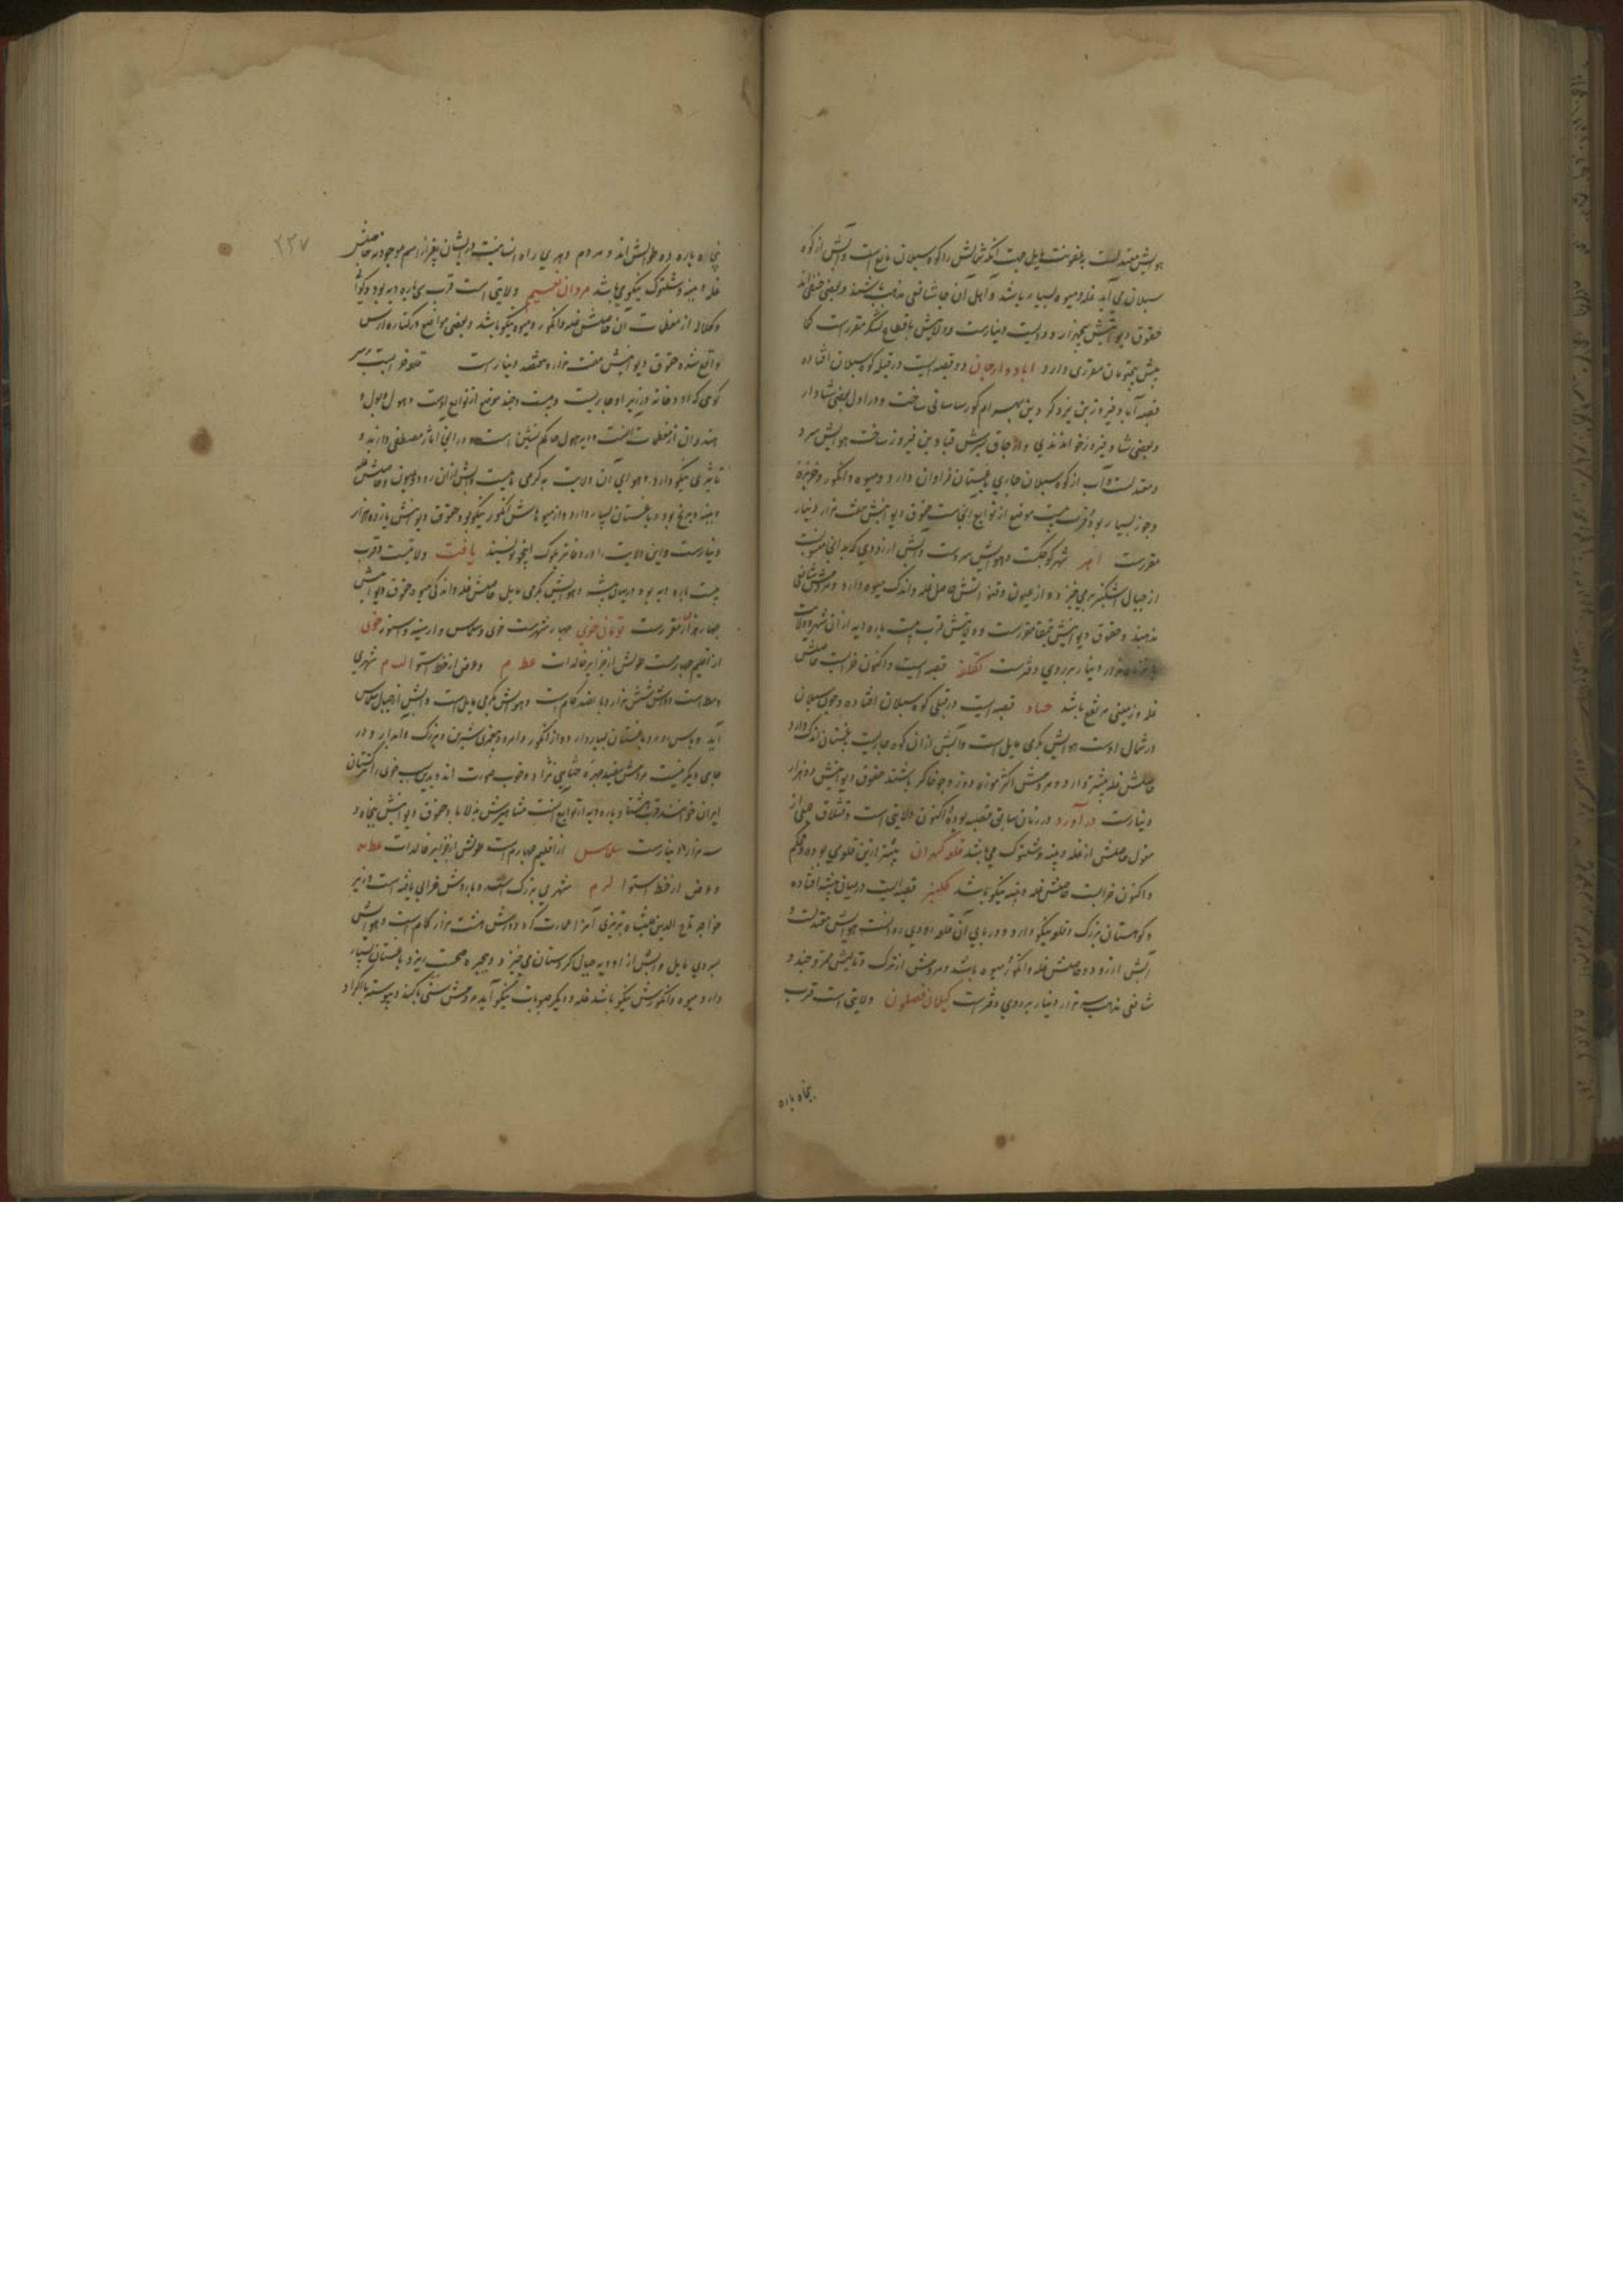 هوایش معتدلست بعفونت مایل جهت آنکه شمالش را کوه سبلان مانع است و آبش از کوه
سبلان می آید غله و میوه بسیار باشد و اهل آن جا شافعی مذهب باشند و بعضی حنفی اند
حقوق دیوانیش پنجهزار و دویست دینارست و ولایتش باقطاع لشکر مقررست کما
بیش پنج تومان مقرری دارد اباد و ارجان دو قصبه است در قبله کوه سبلان افتاده
قصبه آباد فیروز بن یزدکرد بن بهرام کور ساسانی ساخت و در اول بعضی شاد وار
و بعضی شاد فیروز خواندندی و ارجاق پسرش قباد بن فیروز ساخت هوایش سرد
و معتدلست و آب از کوه سبلان جاری باغستان فراوان دارد و میوه و انکور و خربزه
و جوز بسیار بود و قرب بیست موضع از توابع آنجاست حقوق دیوانیش هفت هزار دینار
مقررست اهر شهر کوچکست و هوایش سردست و آبش از رودی که بدانجا منسوبست
از جبال اشکنبر می خیزد و از عیون و قنوات حاصلش غله و اندک میوه دارد و مردمش شافعی
مذهبند و حقوق دیوانیش بتمغا مقررست و ولایتش قرب بیست پاره دیه از آن شهر و ولایت
هزار دینار بر روی دفترست تکلفه قصبه است و اکنون خرابست حاصلش
غله و زمینی مرتفع باشد خیاو قصبه است در قبلی کوه سبلان افتاده و چون سبلان
در شمال اوست هوایش بگرمی مایل است و آبش از آن کوه جاریست باغستان اندک دارد
حاصلش غله بیشتر دارد و مردمش اکثر موزه دوز و چوخاگر باشند حقوق دیوانیش دو هزار
دینارست درآورد در زمان سابق قصبه بوده و اکنون ولایتی است و قشلاق جمعی از
مغول حاصلش از غله و پنبه و شلتوک می باشد قلعه کهران پیشتر ازین قلعه ی بوده و محکم
و اکنون خرابست حاصلش غله و پنبه نیکو باشد کلنبر قصبه ایست در میان بیشه افتاده
و کوهستان بزرک و قلعه نیکو دارد و در پای آن قلعه رودی روانست هوایش معتدلست و
آبش از رود و حاصلش غله و انکور و میوه باشد و مردمش از ترک و تالیش ممزوجند و
شافعی مذهب سه هزار دینار بر روی دفترست کیلان فصلون ولایتی است قرب
پنجاه پاره
۲۲۷
پنجاه پاره ده طوالش اند و مردم دهری راه انسانیت در ایشان بغیر از اسم موجود نه حاصلش
غله و پنبه و شلتوک نیکو می باشد مردان نعیم ولایتی است قرب سی پاره دیه بود و کوا
و کلاله از معظمات آن حاصلش غله و انکور و میوه نیکو باشد و بعضی مواضع در کناره ارس
واقع شده حقوق دیوانیش هفت هزار و هشتصد دینارست قلعه خرابست بر سر
کوهی که رودخانه در زیر او جاریست و بیست و چند موضع از توابع اوست و هول و بول و
هندوان از معظمات آنست و دیه هول حاکم نشین است و در انجا اثار مصطفی دارند و
تاثیری نیکو دارد و هوای آن ولایت بگرمی مایلست و آبش از آن رود و عیون حاصلش غله
و پنبه و برنج بود و باغستان بسیار دارد و از میوه هاش انکور نیکو بود حقوق دیوانیش یازده هزار
دینارست و این ولایت را در دفاتر بلوک اینجو نویسند یافت ولایتست قرب
بیست پاره دیه بود در میان بیشه و هوایش بگرمی مایل حاصلش غله و اندکی میوه حقوق دیوانیش
چهار هزار مقررست تومان خوی چهار شهرست خوی و سلماس و ارمیه و اشنویه خوی
از اقلیم چهارمست طولش از جزایر خالدات عط م و عرض از خط استوا لب م شهری
وسط است دورش شش هزار و پانصد کامست و هوایش بگرمی مایل است و آبش از جبال سلماس
آید و بارس رود و باغستان بسیار دارد و از انکور و امرود پیغمبری شیرین و بزرک و آبدار و در
جای دیکر نیست مردمش سفید چهره ختایی نژاد و خوب صورت اند و بدین سبب خوی را ترکستان
ایران خوانند قرب هشتاد پاره دیه از توابع آنست مشاهیرش و حقوق دیوانیش پنجاه و
سه هزار دینارست سلماس از اقلیم چهارم است طولش از جزایر خالدات عط یه
و عرض از خط استوا لر م شهری بزرک است و باروش خرابی یافته است وزیر
خواجه تاج الدین علیشاه تبریزی آنرا عمارت کرد دورش هشت هزار کام است و هوایش
بسردی مایل و آبش از اودیه جبال کردستان می خیزد و ببحیره چیچست ریزد باغستان بسیار
دارد میوه و انکورش نیکو باشد غله و دیکر حبوبات نیکو آید مردمش سنی پاکند و پیوسته با اکراد